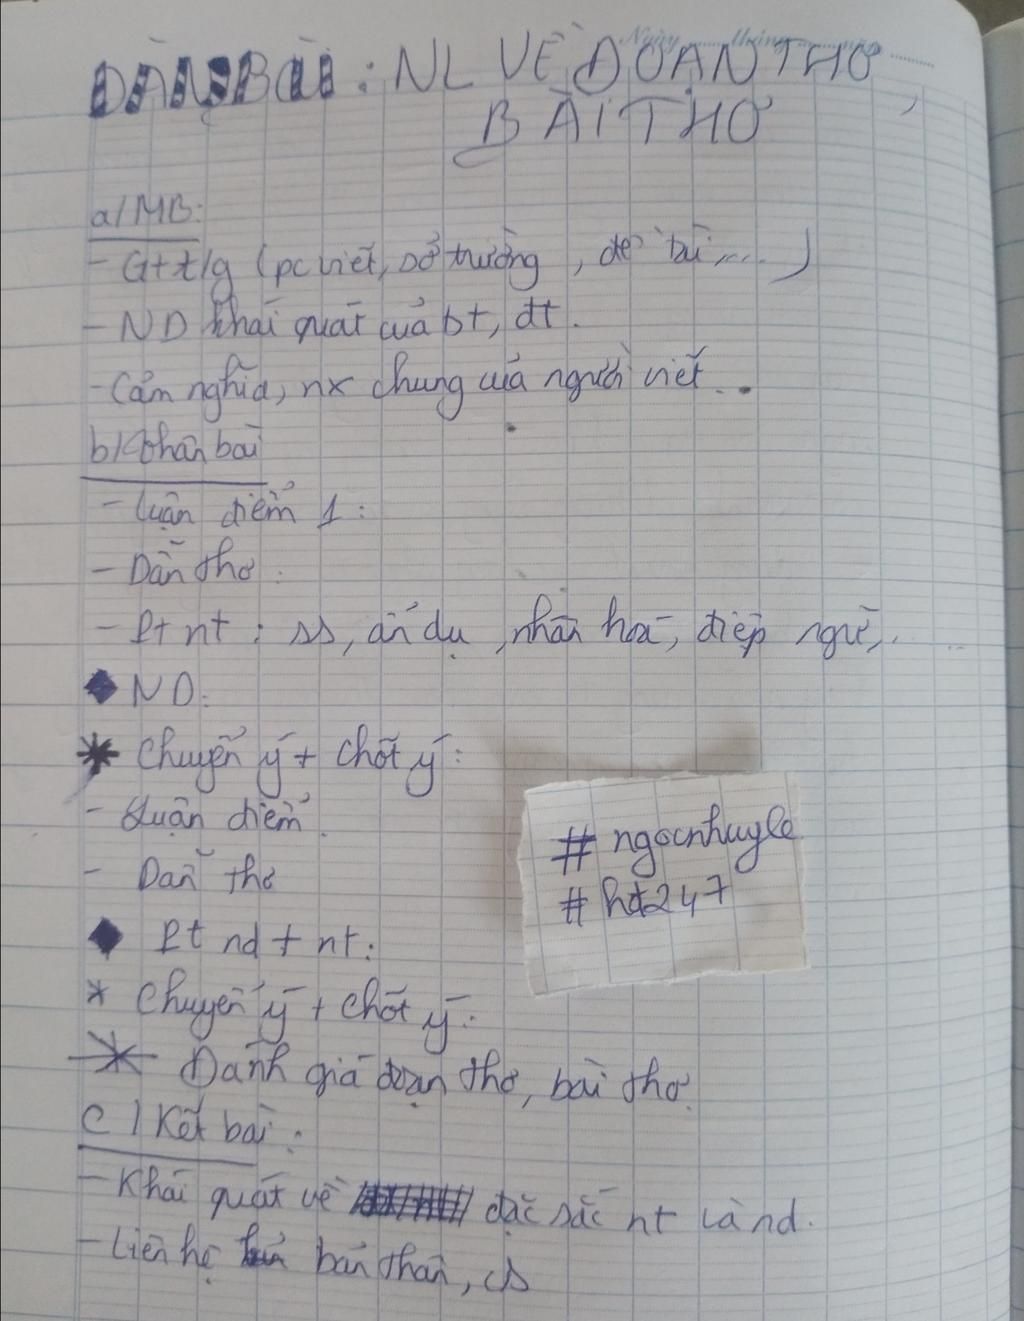 DÀN BÀI: NL VỀ ĐOẠN THƠ,
BÀI THƠ
Ngày
a/ MB:
- Gt t/g (pc viết, sở trường, đề tài,...)
- ND khái quát của bt, đt.
- Cảm nghĩa, nx chung của người viết..
b/ Thân bài
- Luận điểm 1:
- Dẫn thơ:
- Pt nt: ss, ẩn dụ, nhân hoá, điệp ngữ,...
◆ ND:
* Chuyển ý + chốt ý:
- Luận điểm.
- Dẫn thơ
◆ Pt nd + nt:
* Chuyển ý + chốt ý:
* Đánh giá đoạn thơ, bài thơ.
# ngocnhuyle
# hđ247
c/ Kết bài:
- Khái quát về đặc sắc nt và nd.
- Liên hệ bản thân, cs